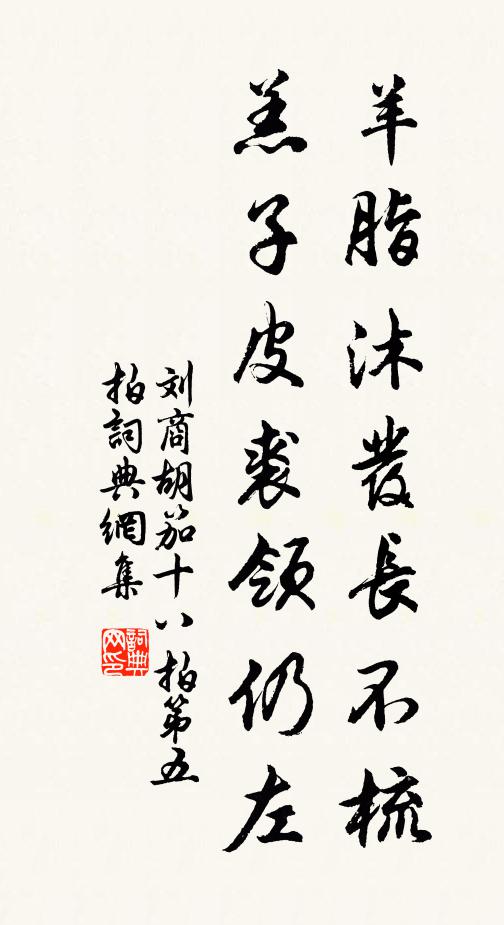 羊脂沐發長不梳
羔子皮裘領仍左
刘商胡笳十八拍第五
拍詞典網集
詞典
网印